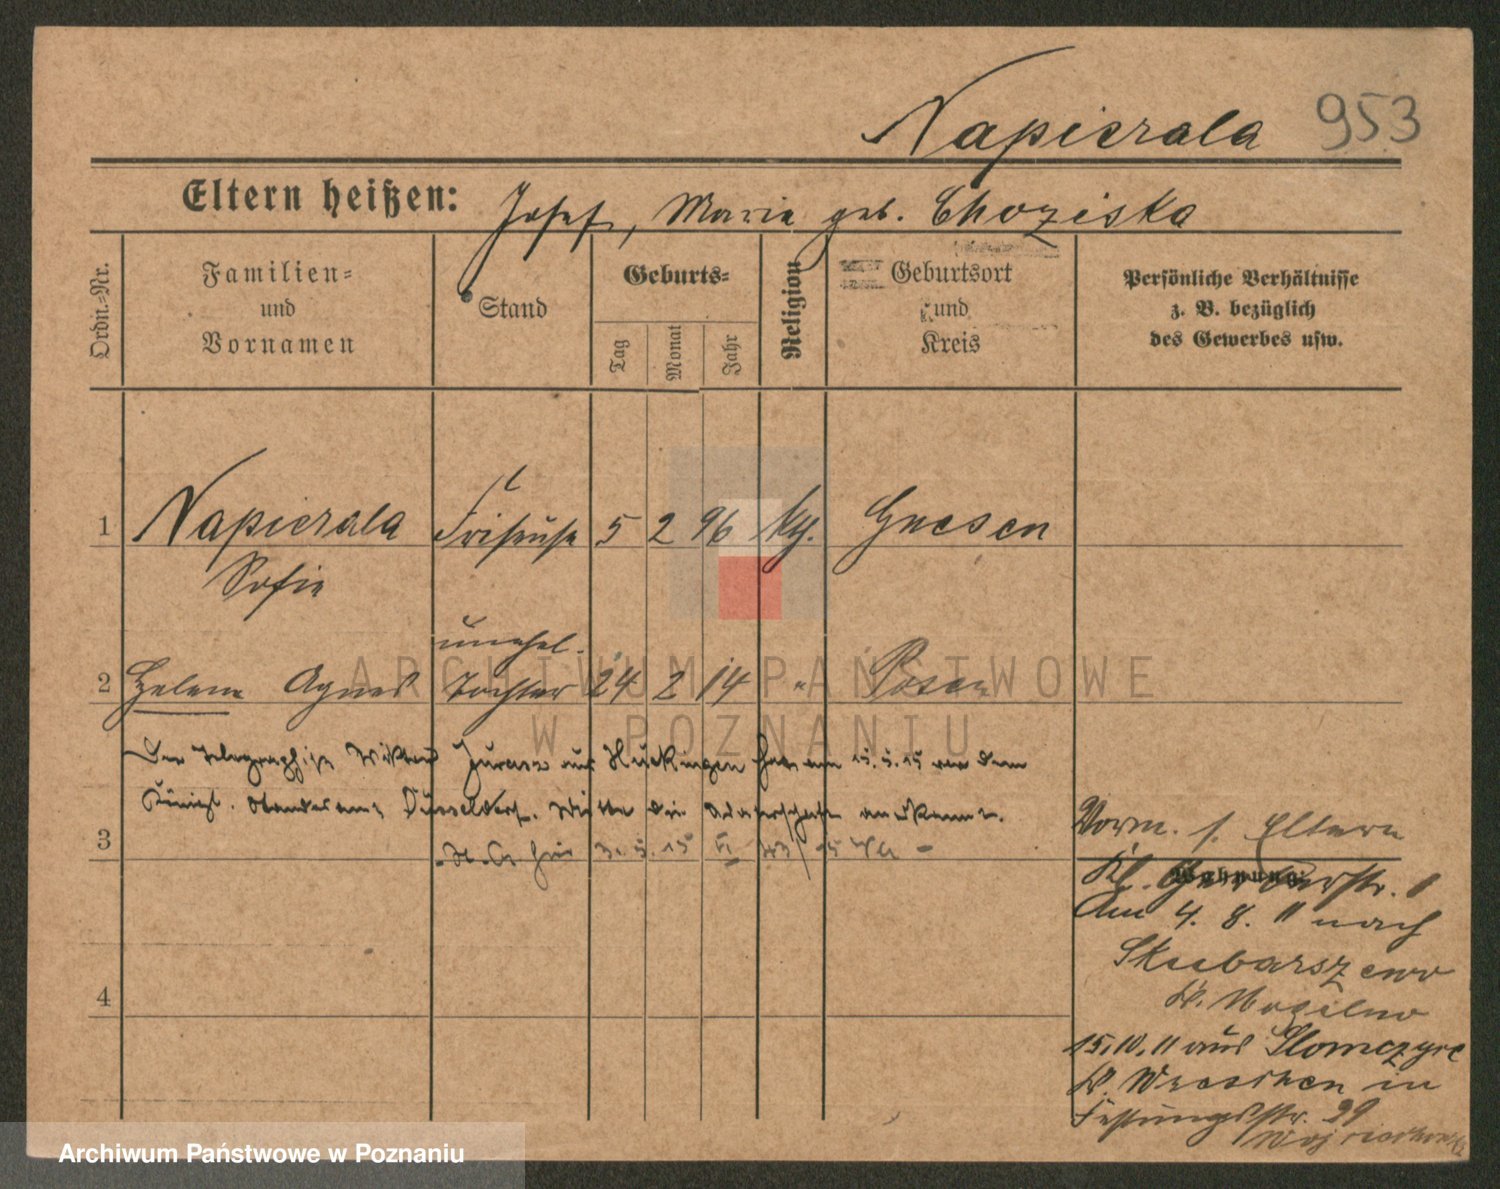 Napierala 953
Eltern heißen: Josef, Maria geb. Choziska
Ordn.-Nr.
Familien-
und
Vornamen
Stand
Geburts-
Tag
Monat
Jahr
Religion
Geburtsort
und
Kreis
Persönliche Verhältnisse
z. B. bezüglich
des Gewerbes usw.
1 Napierala Friseuse 5 2 96 kth. Gnesen
Sofie
unehel.
2 Helene Agnes Tochter 24 2 14 " Posen
Der Telegraphist Jurasz aus Huckingen hat am 15.5.15 vor dem
Königl. Standesamt Düsseldorf die Vaterschaft anerkannt.
3
4
Vorm. s. Eltern
Wohnung:
Kl. Gerberstr. 1
Am 4. 8. 11 nach
Skubarszewo
Kr. Mogilno
15.10.11 aus Slomczyce
Kr. Wreschen in
Festungsstr. 29
ARCHIWUM PAŃSTWOWE
W POZNANIU
Archiwum Państwowe w Poznaniu